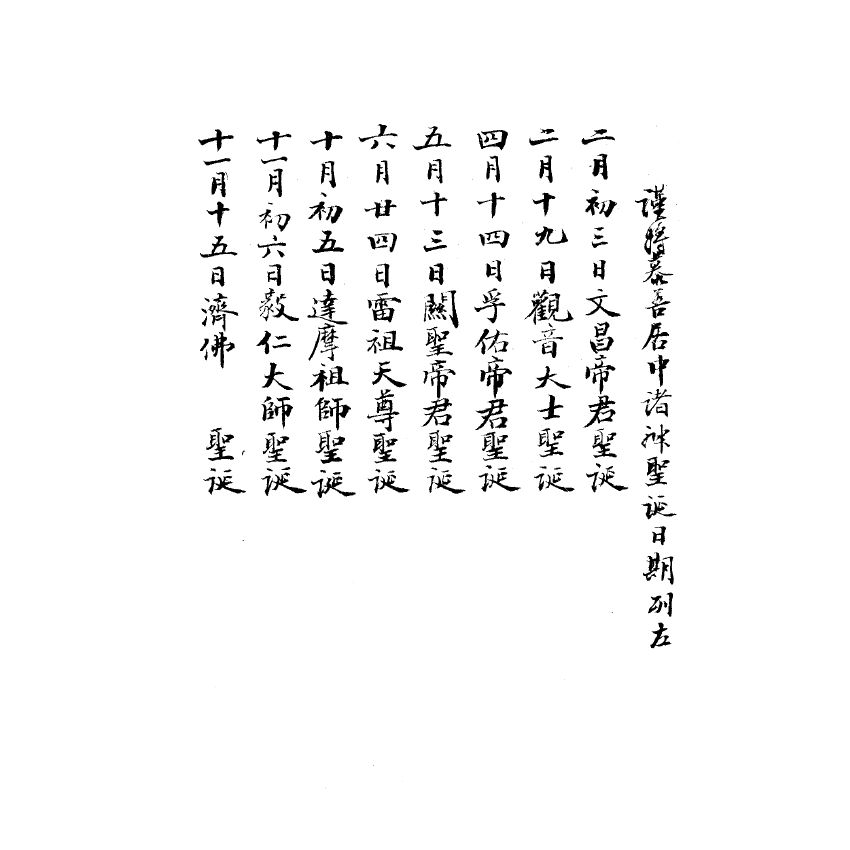 謹將慕吾居中諸神聖誕日期列左
二月初三日文昌帝君聖誕
二月十九日觀音大士聖誕
四月十四日孚佑帝君聖誕
五月十三日關聖帝君聖誕
六月廿四日雷祖天尊聖誕
十月初五日達摩祖師聖誕
十一月初六日毅仁大師聖誕
十一月十五日濟佛 聖誕